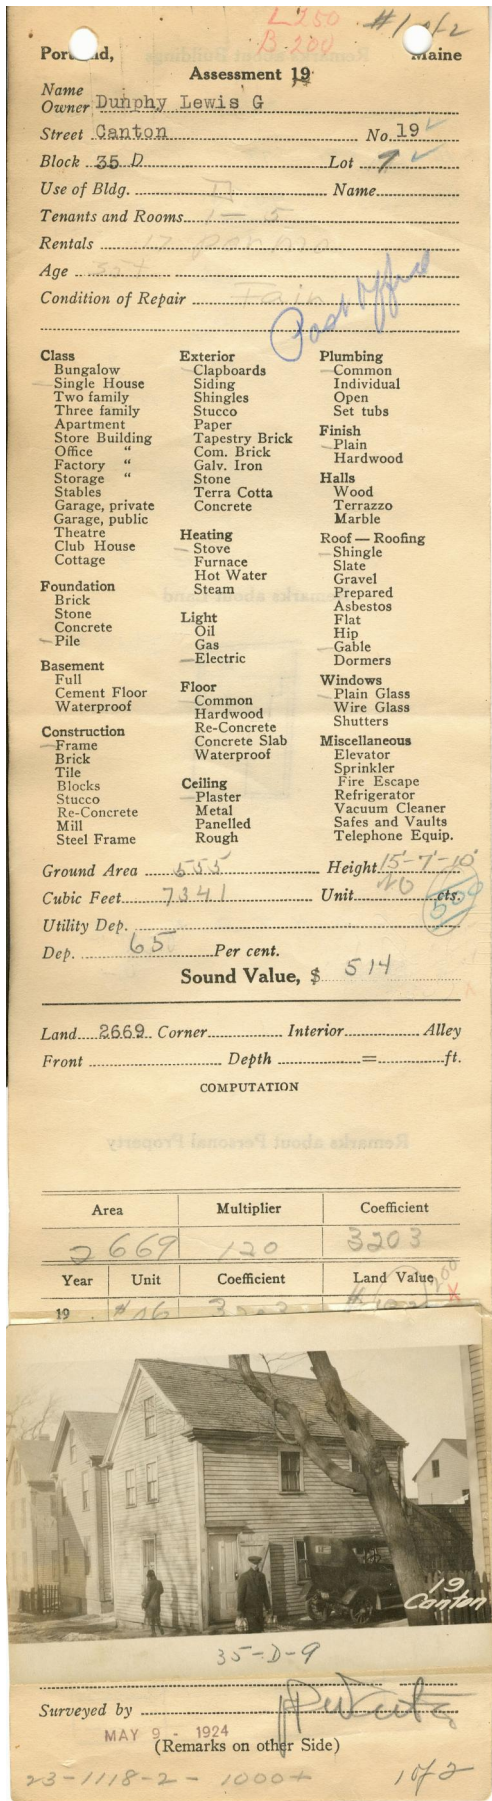 L 250 #1 of 2
B 200
Portland, Maine
Assessment 19
Name
Owner Dunphy Lewis G
Street Canton No. 19
Block 35 D Lot 7
Use of Bldg. Name
Tenants and Rooms 1 — 5
Rentals 17 per mo
Age
Condition of Repair Fair
Class
Bungalow
Single House
Two family
Three family
Apartment
Store Building
Office "
Factory "
Storage "
Stables
Garage, private
Garage, public
Theatre
Club House
Cottage
Foundation
Brick
Stone
Concrete
Pile
Basement
Full
Cement Floor
Waterproof
Construction
Frame
Brick
Tile
Blocks
Stucco
Re-Concrete
Mill
Steel Frame
Exterior
Clapboards
Siding
Shingles
Stucco
Paper
Tapestry Brick
Com. Brick
Galv. Iron
Stone
Terra Cotta
Concrete
Heating
Stove
Furnace
Hot Water
Steam
Light
Oil
Gas
Electric
Floor
Common
Hardwood
Re-Concrete
Concrete Slab
Waterproof
Ceiling
Plaster
Metal
Panelled
Rough
Plumbing
Common
Individual
Open
Set tubs
Finish
Plain
Hardwood
Halls
Wood
Terrazzo
Marble
Roof — Roofing
Shingle
Slate
Gravel
Prepared
Asbestos
Flat
Hip
Gable
Dormers
Windows
Plain Glass
Wire Glass
Shutters
Miscellaneous
Elevator
Sprinkler
Fire Escape
Refrigerator
Vacuum Cleaner
Safes and Vaults
Telephone Equip.
Ground Area 555 Height 15'-7'-10'
Cubic Feet 7341 Unit 20 cts.
500
Utility Dep.
Dep. 65 Per cent.
Sound Value, $ 514
Land 2669 Corner Interior Alley
Front Depth = ft.
COMPUTATION
Area Multiplier Coefficient
2669 120 3203
Year Unit Coefficient Land Value
19
19
Canton
35-D-9
Surveyed by
MAY 9 - 1924
(Remarks on other Side)
23-1118-2 - 1000+ 1 of 2